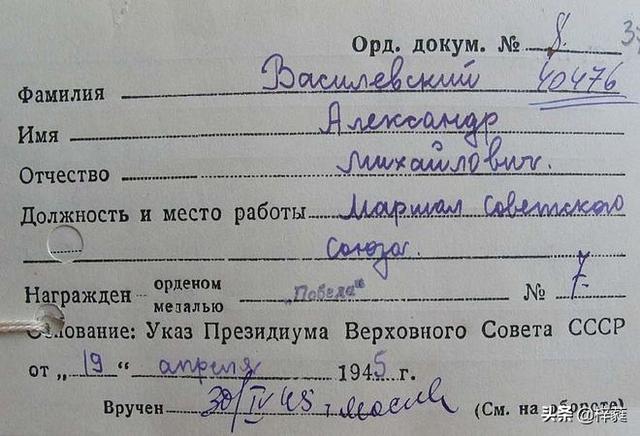 Орд. докум. № 8
Фамилия Василевский 40476
Имя Александр
Отчество Михайлович.
Должность и место работы Маршал Советского
Союза.
Награжден орденом медалью „Победа“ № 7
Основание: Указ Президиума Верховного Совета СССР
от „19“ апреля 1945 г.
Вручен 30/IV 45 г. (См. на обороте)
头条 @梓蕤